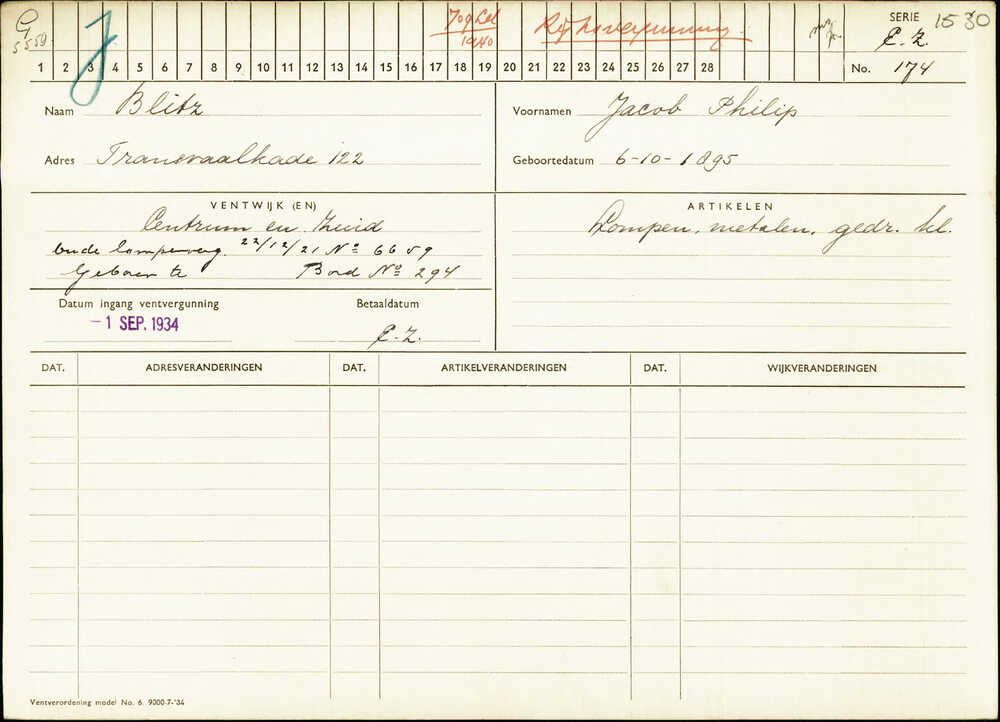 G 5559
J
Jog Lel 1940
Rijksvergunning.
SERIE 1530
C. Z.
1 2 3 4 5 6 7 8 9 10 11 12 13 14 15 16 17 18 19 20 21 22 23 24 25 26 27 28
No. 174
Naam Blitz
Voornamen Jacob Philip
Adres Transvaalkade 122
Geboortedatum 6-10-1895
VENTWIJK (EN)
Centrum en Zuid
oude lompenverg. 22/12/21 No 6659
Geboen te Bord No 294
ARTIKELEN
Lompen, metalen, gedr. kl.
Datum ingang ventvergunning
-1 SEP. 1934
Betaaldatum
C.Z.
DAT. ADRESVERANDERINGEN DAT. ARTIKELVERANDERINGEN DAT. WIJKVERANDERINGEN
Ventverordening model No. 6. 9000-7-'34